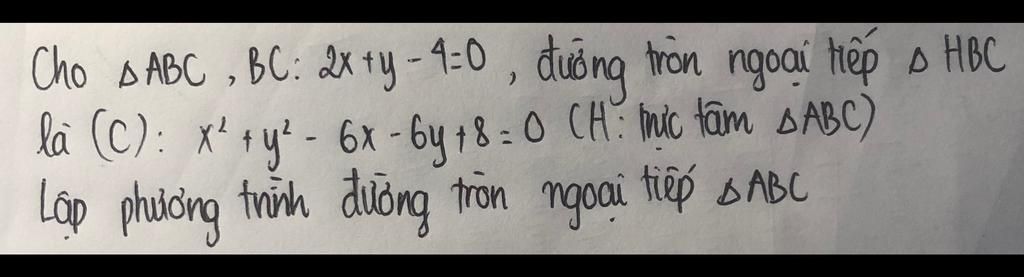 Cho ΔABC, BC: 2x+y-4=0, đường tròn ngoại tiếp Δ HBC
là (C): x² + y² - 6x - 6y + 8 = 0 (H: trực tâm ΔABC)
Lập phương trình đường tròn ngoại tiếp ΔABC